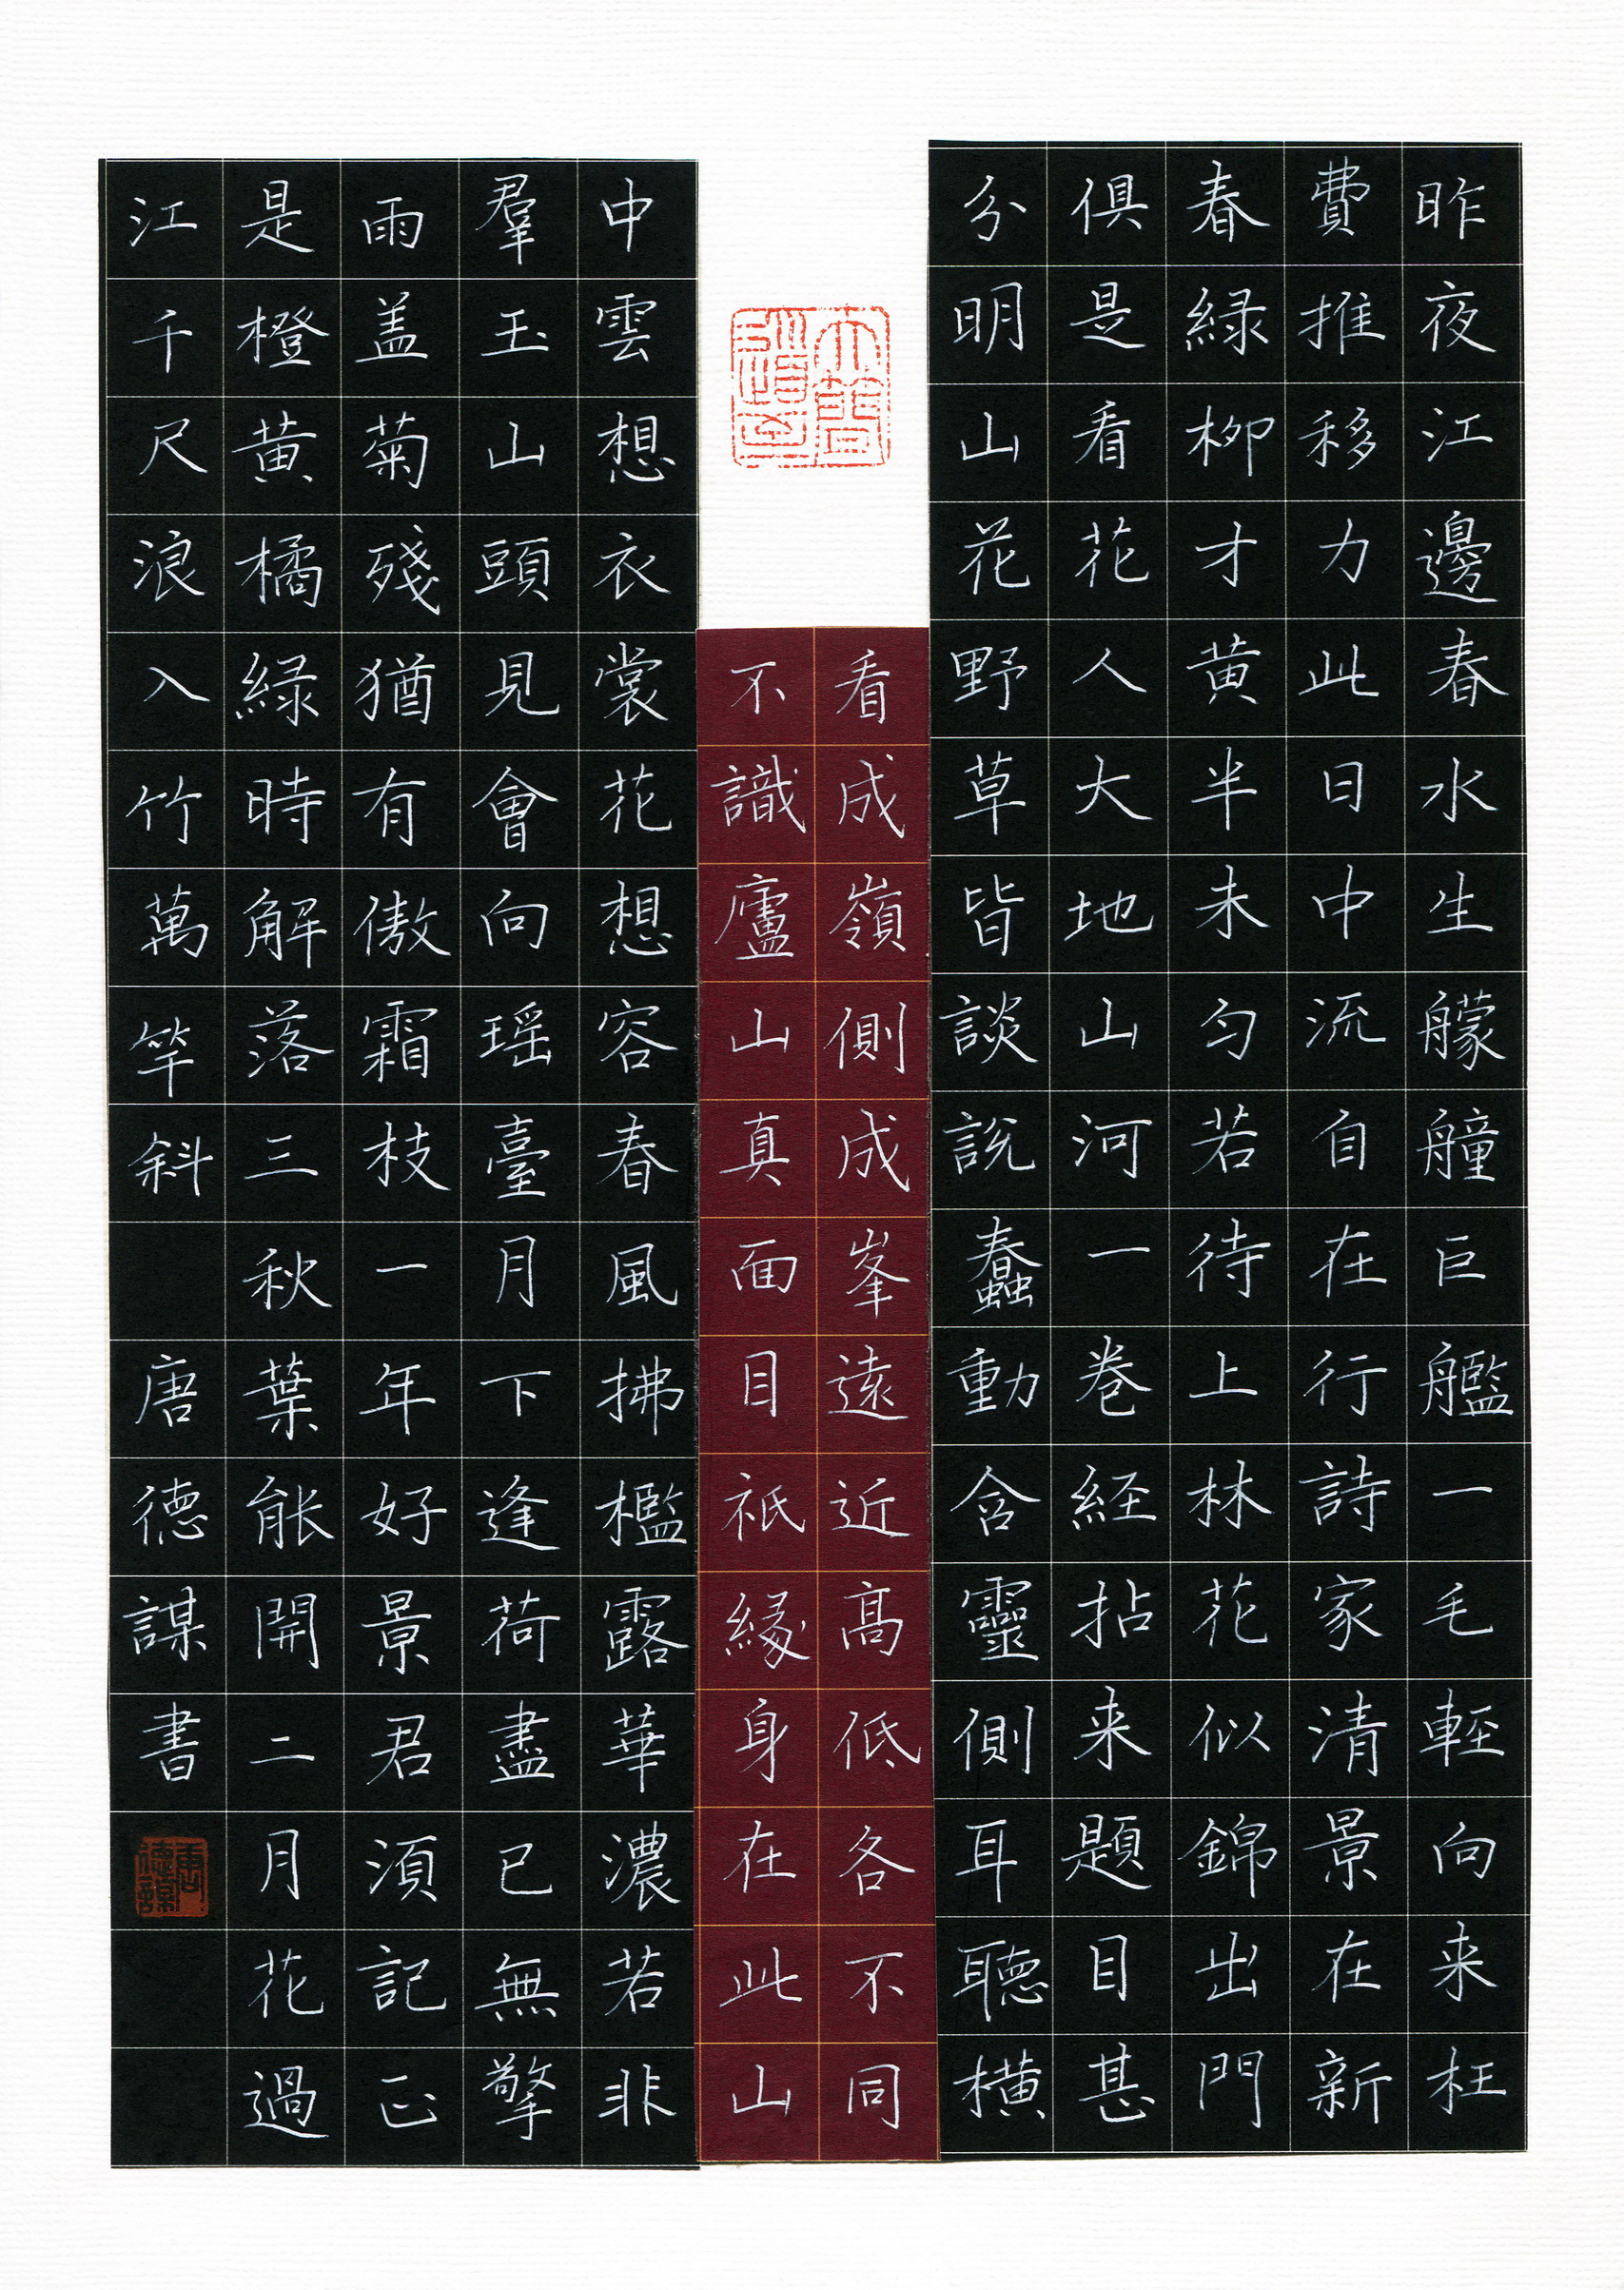 昨夜江邊春水生艨艟巨艦一毛輕向来枉
費推移力此日中流自在行詩家清景在新
春緑柳才黄半未匀若待上林花似錦出門
俱是看花人大地山河一卷経拈来題目甚
分明山花野草皆談說蠢動含靈側耳聽橫
看成嶺側成峯遠近髙低各不同
不識廬山真面目祇緣身在此山
中雲想衣裳花想容春風拂檻露華濃若非
羣玉山頭見會向瑶臺月下逢荷盡已無擎
雨盖菊殘猶有傲霜枝一年好景君須記正
是橙黄橘緑時解落三秋葉能開二月花過
江千尺浪入竹萬竿斜 唐德謀書
唐德謀